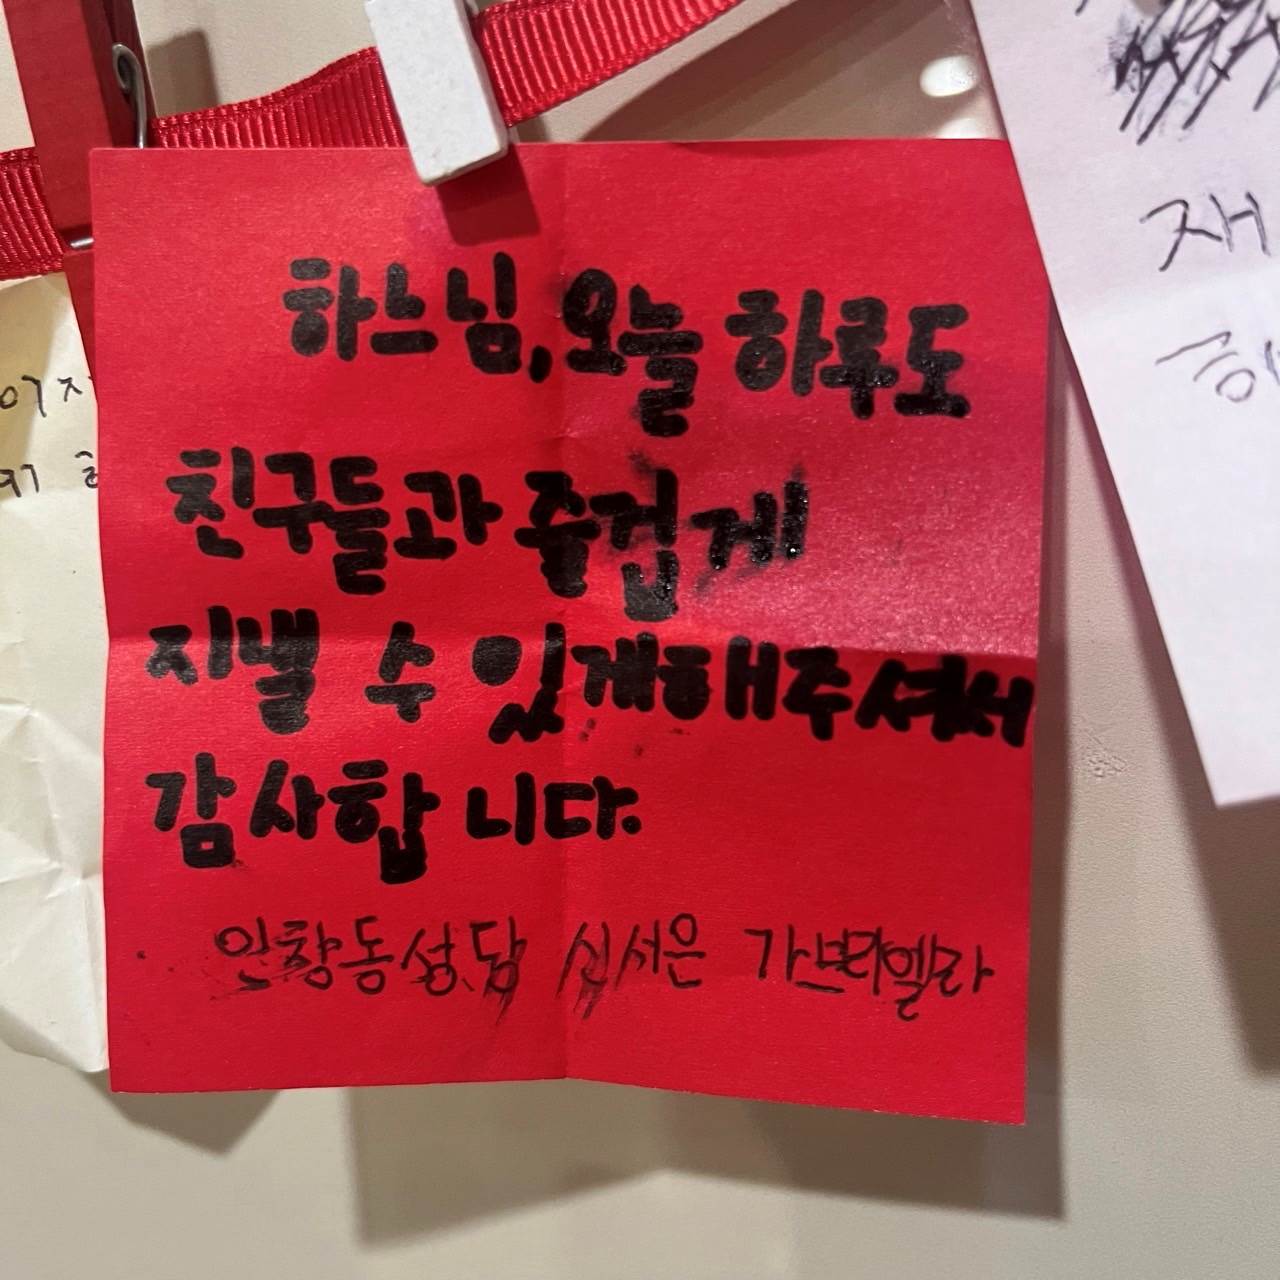 하느님, 오늘 하루도
친구들과 즐겁게
지낼 수 있게해주셔서
감사합니다.
인창동성당 심서은 가브리엘라
재